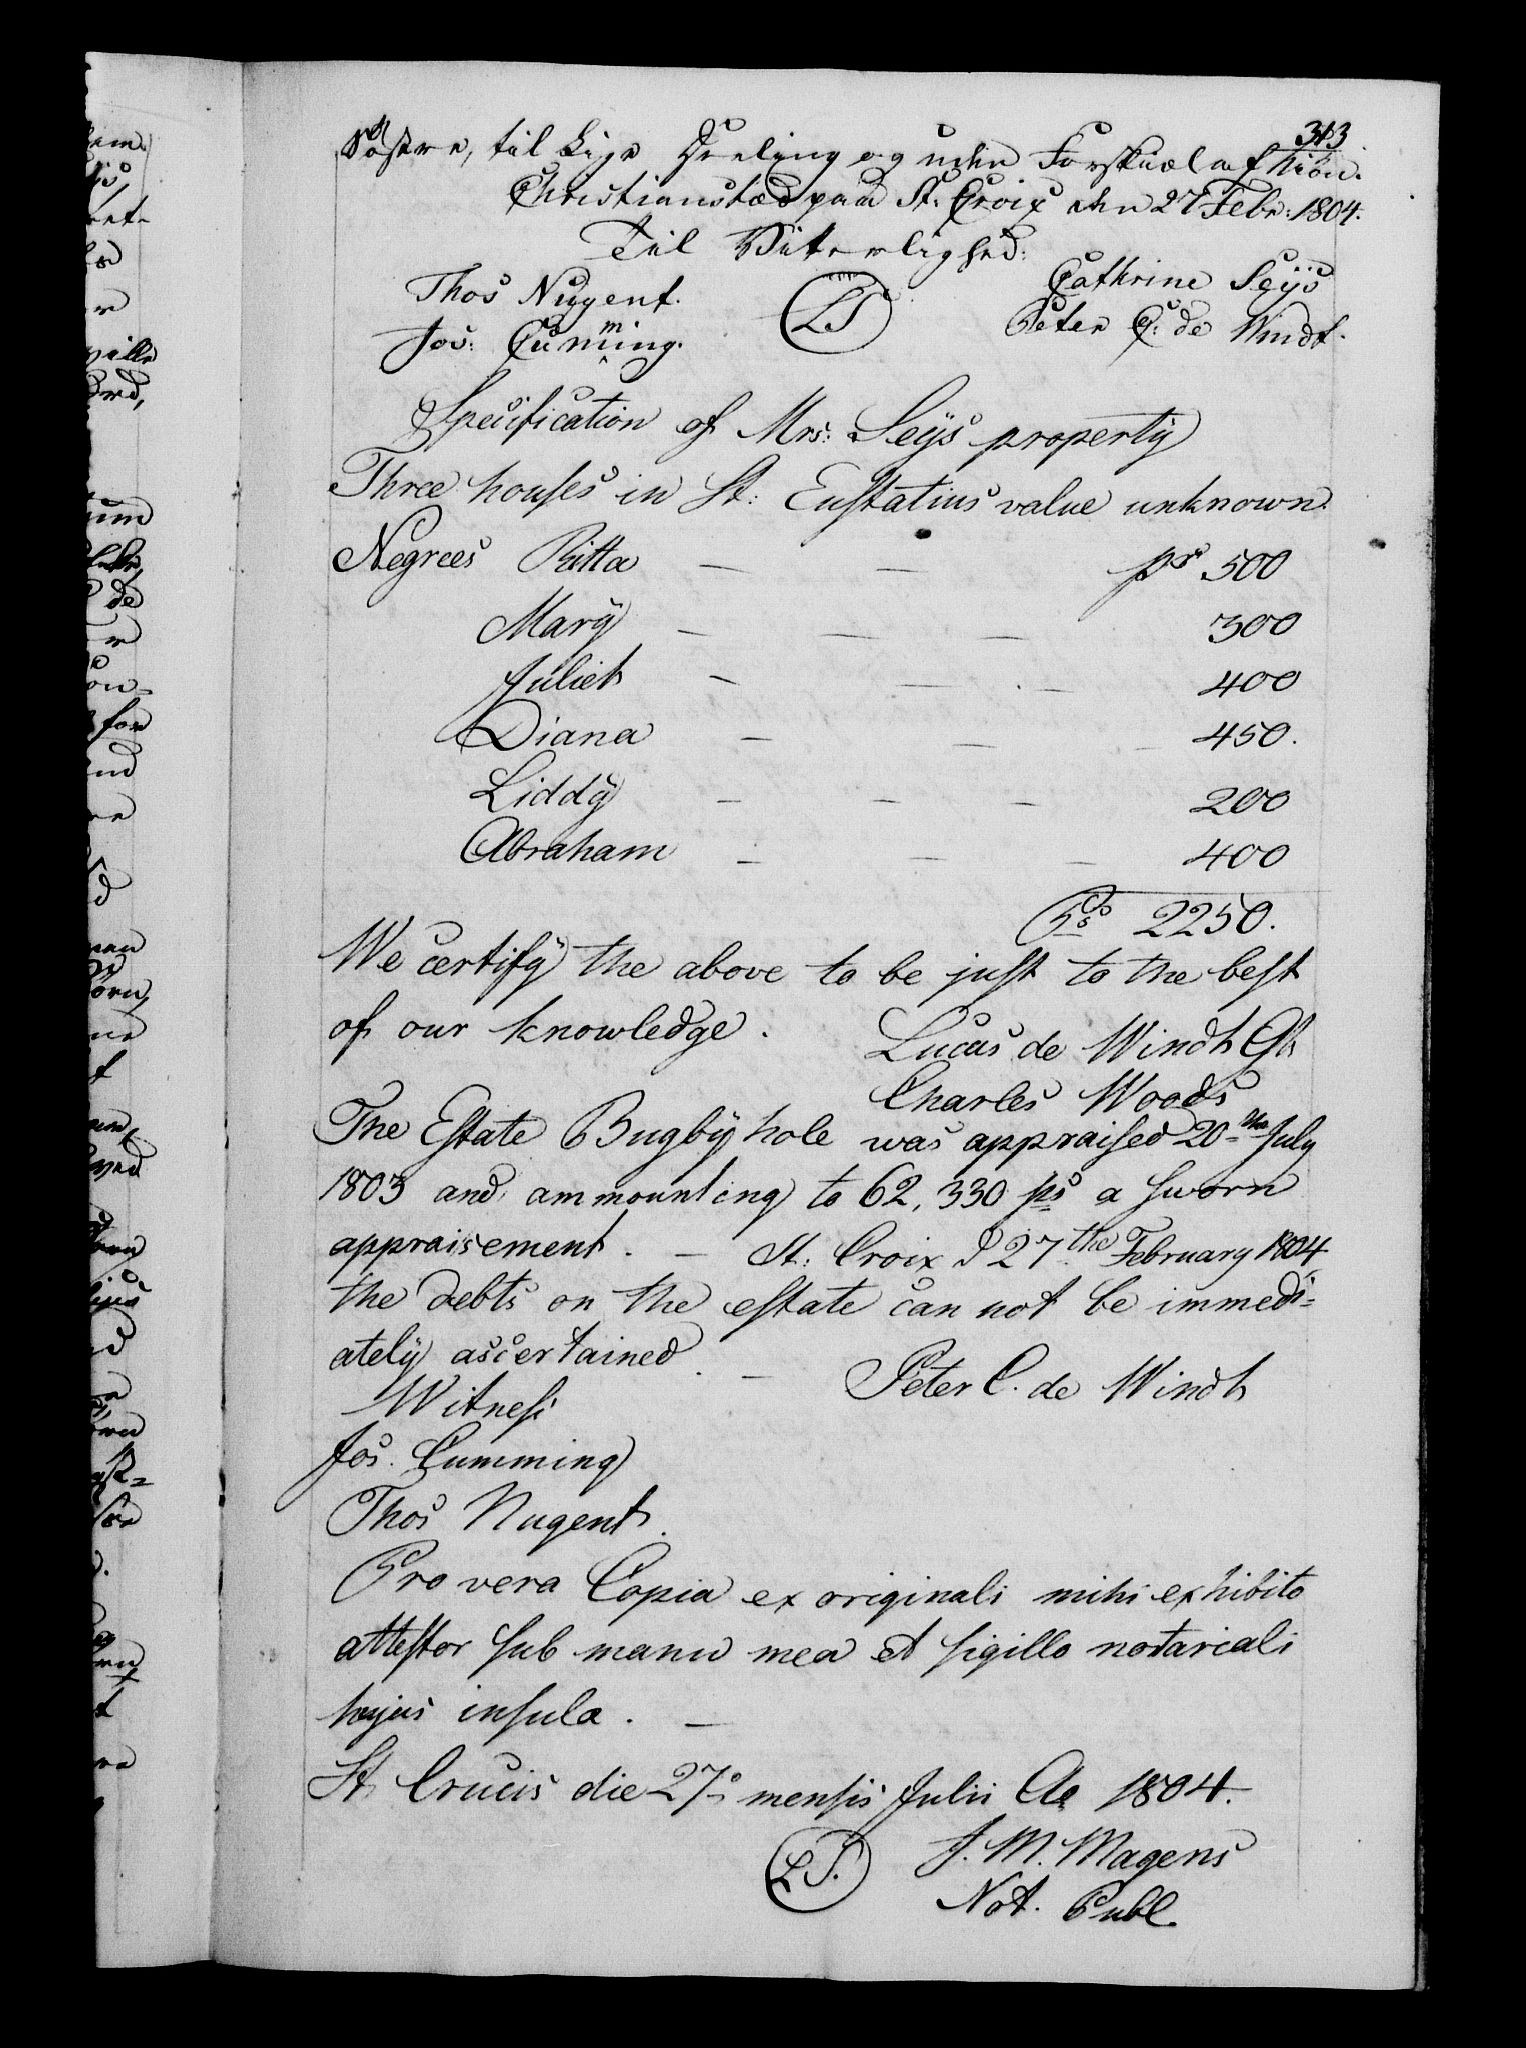 313
Søstre, til Lige Deeling og uden Forskiæl af Kiøn.
Christianstæd paa St. Croix den 27 Febr: 1804.
Til Viterlighed:
Thos Nugent. LS Cathrine Seÿs
Jos: Cumming. Peter C: de Windt.
Specification of Mrs: Seÿs property
Three houses in St: Eustatius value unknown.
Negrees Ritta — — ps 500
Marÿ — — — 300
Juliet — — — 400
Diana — — — 450.
Liddÿ — — — 200
Abraham — — — 400
Ps 2250.
We certifÿ the above to be just to the best
of our knowledge. Lucas de Windt Gb
Charles Woods
The Estate Bugbÿ hole was appraised 20th July
1803 and ammounting to 62,330 ps a sworn
appraisement. — St: Croix d 27the February 1804
the debts on the estate can not be immedi=
atelÿ ascertained. — Peter C. de Windt
Witness
Jos. Cumming
Thos Nugent.
Pro vera Copia ex originali mihi exhibito
attestor sub manu mea et sigillo notariali
hujus insula. —
St Crucis die 27o mensis Julii Ao 1804.
LS. J. M. Magens
Not. Publ.